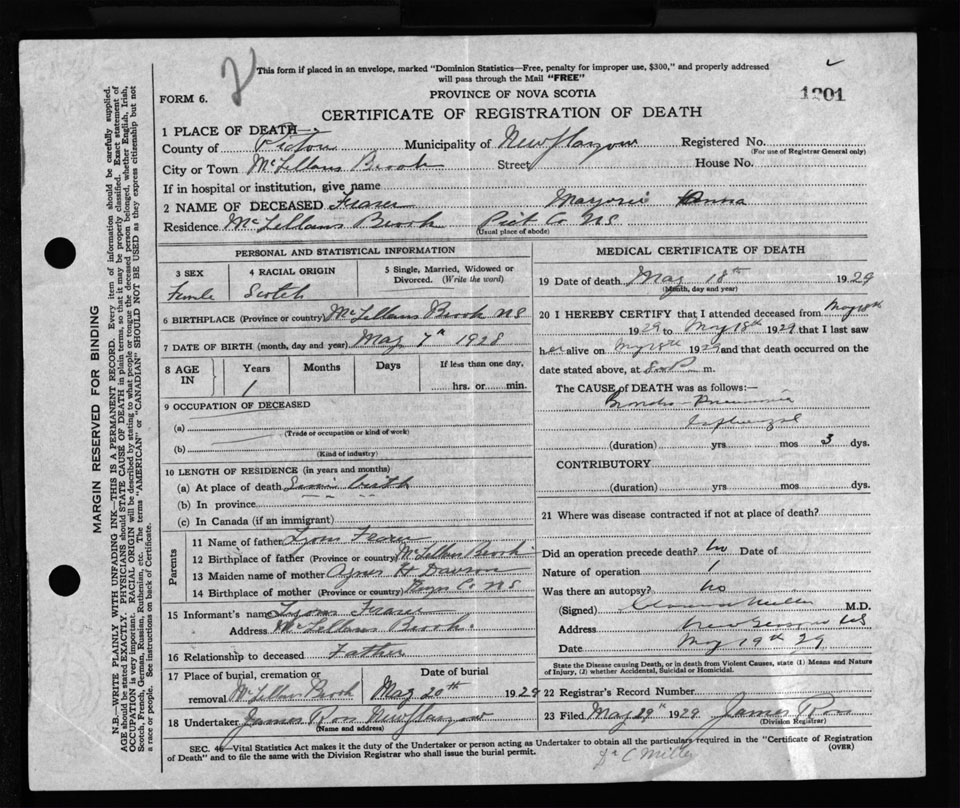 This form if placed in an envelope, marked "Dominion Statistics—Free, penalty for improper use, $300," and properly addressed
will pass through the Mail "FREE"
FORM 6.
PROVINCE OF NOVA SCOTIA
1201
CERTIFICATE OF REGISTRATION OF DEATH
1 PLACE OF DEATH
County of Pictou Municipality of New Glasgow Registered No.
(For use of Registrar General only)
City or Town McLellans Brook Street House No.
If in hospital or institution, give name
2 NAME OF DECEASED Fraser Marjorie Anna
Residence McLellans Brook Pict Co NS
(Usual place of abode)
PERSONAL AND STATISTICAL INFORMATION
3 SEX
Female
4 RACIAL ORIGIN
Scotch
5 Single, Married, Widowed or
Divorced. (Write the word)
6 BIRTHPLACE (Province or country) McLellans Brook NS
7 DATE OF BIRTH (month, day and year) May 7th 1928
8 AGE
IN
Years
1
Months
Days
If less than one day,
hrs. or min.
9 OCCUPATION OF DECEASED
(a)
(Trade or occupation or kind of work)
(b)
(Kind of industry)
10 LENGTH OF RESIDENCE (in years and months)
(a) At place of death Since birth
(b) In province
(c) In Canada (if an immigrant)
Parents
11 Name of father Lyons Fraser
12 Birthplace of father (Province or country) McLellans Brook
13 Maiden name of mother Agnes H Dawson
14 Birthplace of mother (Province or country) Co NS
15 Informant's name Lyons Fraser
Address McLellans Brook
16 Relationship to deceased Father
17 Place of burial, cremation or
removal McLellans Brook
Date of burial
May 20th 1929
18 Undertaker James Ross New Glasgow
(Name and address)
MEDICAL CERTIFICATE OF DEATH
19 Date of death May 18th 1929
(Month, day and year)
20 I HEREBY CERTIFY that I attended deceased from May 18th
1929 to May 18th 1929 that I last saw
her alive on May 18th 1929 and that death occurred on the
date stated above, at P m.
The CAUSE of DEATH was as follows:—
Broncho-Pneumonia
Influenzal
(duration) yrs mos 3 dys.
CONTRIBUTORY
(duration) yrs mos dys.
21 Where was disease contracted if not at place of death?
Did an operation precede death? No Date of
Nature of operation
Was there an autopsy? No
(Signed) Clarence Miller M.D.
Address New Glasgow NS
Date May 19th 29
State the Disease causing Death, or in death from Violent Causes, state (1) Means and Nature
of Injury, (2) whether Accidental, Suicidal or Homicidal.
22 Registrar's Record Number
23 Filed May 29th 1929 James Ross
(Division Registrar)
SEC. 46—Vital Statistics Act makes it the duty of the Undertaker or person acting as Undertaker to obtain all the particulars required in the "Certificate of Registration
of Death" and to file the same with the Division Registrar who shall issue the burial permit.
(OVER)
Dr C Miller
MARGIN RESERVED FOR BINDING
N.B.—WRITE PLAINLY WITH UNFADING INK—THIS IS A PERMANENT RECORD. Every item of information should be carefully supplied.
AGE should be stated EXACTLY. PHYSICIANS should STATE CAUSE OF DEATH in plain terms, so that it may be properly classified. Exact statement of
OCCUPATION is very important. RACIAL ORIGIN will be described by stating to what people or tongue the deceased person belonged, whether English, Irish,
Scotch, French, German, Russian, Ruthenian, etc. The terms "AMERICAN" or "CANADIAN" SHOULD NOT BE USED as they express citizenship but not
a race or people. See instructions on back of Certificate.